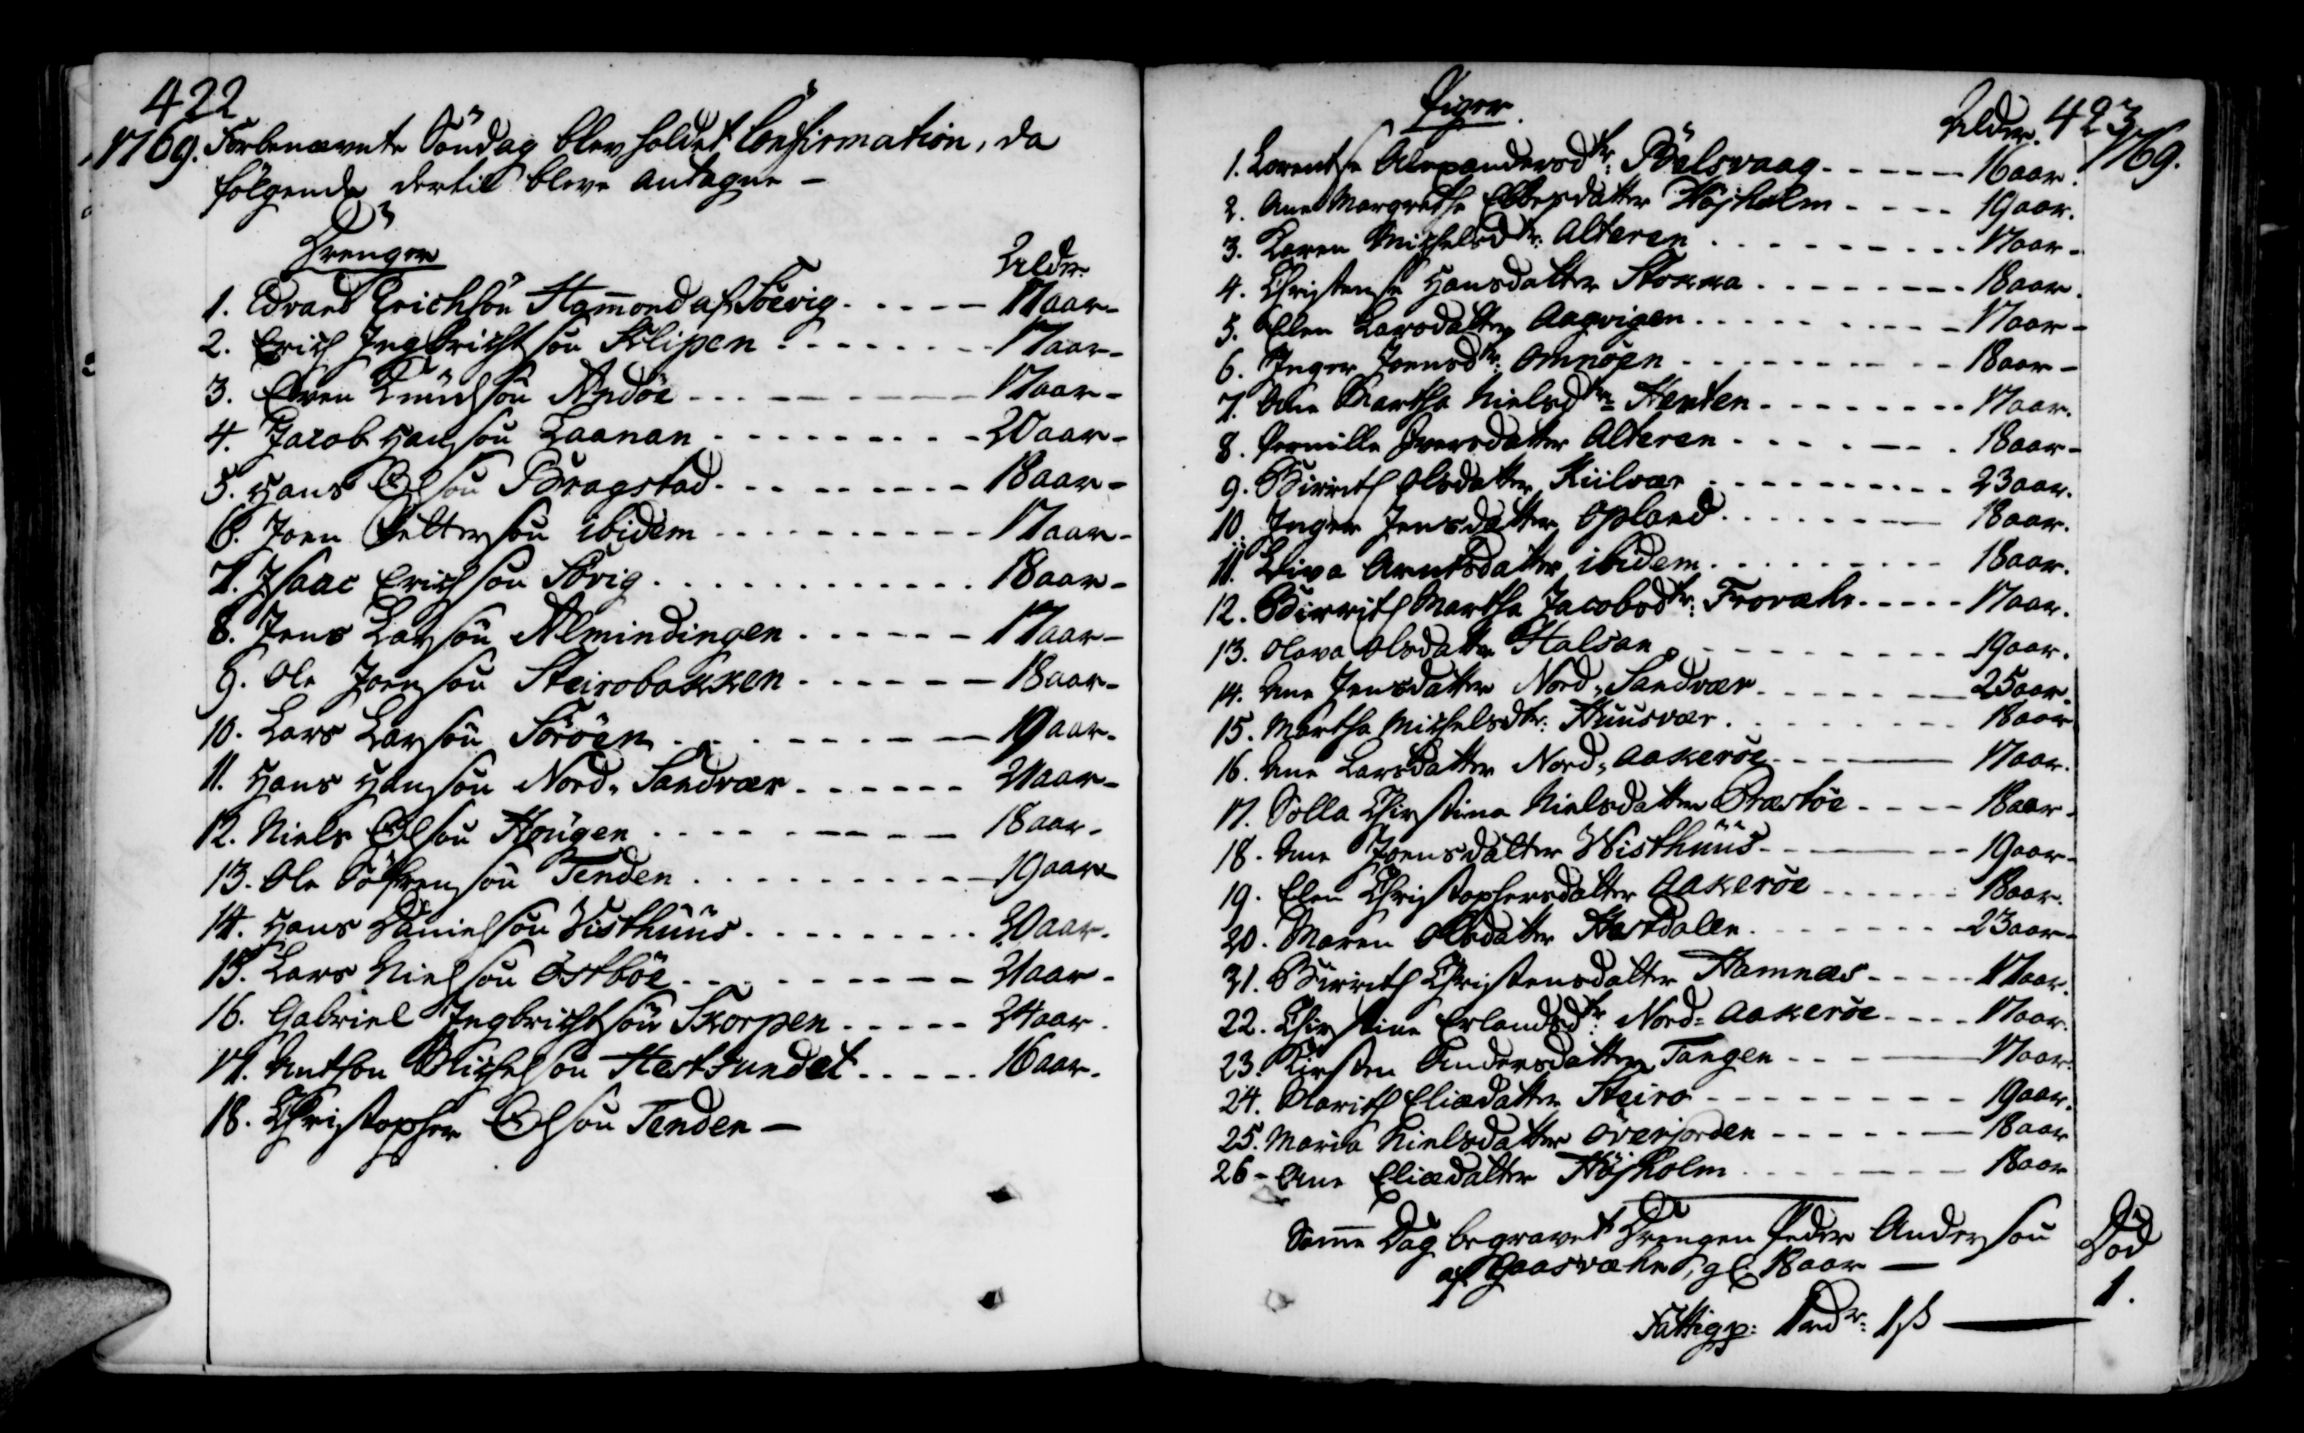 422
1769. Forbenævnte Söndag blev holdet Confirmation, da
følgende dertil bleve antagne -
Drenger
Alder
1. Edvard Erichsön Hamond af Söevig - 17 aar -
2. Erich Ingebrichtsön Klipen - 17 aar -
3. Even Knudsön Andöe - 17 aar -
4. Jacob Hansön Laanan - 20 aar -
5. Hans Olsön Bragstad - 18 aar -
6. Joen Pettersön ibidem - 17 aar -
7. Isaac Erichsön Sövig - 18 aar -
8. Jens Larsön Almindingen - 17 aar -
9. Ole Joensön Steirobakken - 18 aar -
10. Lars Larsön Söröen - 19 aar -
11. Hans Hansön Nord-Sandvær - 21 aar -
12. Niels Olsön Haugen - 18 aar -
13. Ole Söfrensön Tenden - 19 aar
14. Hans Danielsön Visthuus - 20 aar.
15. Lars Nielsön Östböe - 21 aar -
16. Gabriel Ingbrichtsön Skorpen - 24 aar.
17. Michelsön Hestsundet - 16 aar.
18. Christopher Olsön Tenden -
Piger.
Alder. 423
1769.
1. Lorentse Alexandersdtr: Bælsvaag - 16 aar.
2. Ane Margrethe Ebbesdatter Höjholm - 19 aar.
3. Karen Michelsdtr: Alteren - 17 aar -
4. Christense Hansdatter Stokka - 18 aar.
5. Elen Larsdatter Aagvigen - 17 aar -
6. Inger Joensdtr: Omnöen - 18 aar -
7. Ane Martha Nielsdtr: Henten - 17 aar.
8. Pernille Iversdatter Alteren - 18 aar -
9. Birrith Olsdatter Kiilvær - 23 aar.
10. Inger Jensdatter Opland - 18 aar.
11. Liva Arntsdatter ibidem - 18 aar.
12. Birrith Martha Jacobsdtr: Frovahr - 17 aar.
13. Olava Olsdatter Halsan - 19 aar.
14. Ane Jensdatter Nord-Sandvær - 25 aar.
15. Martha Michelsdtr: Huusvær - 18 aar
16. Ane Larsdatter Nord-Aakeröe - 17 aar.
17. Solla Christina Nielsdatter Præstöe - 18 aar -
18. Ane Joensdatter Wisthuus - 19 aar -
19. Elen Christophersdatter Aakeröe - 18 aar.
20. Maren Olsdatter Hestdalen - 23 aar -
21. Birrith Christensdatter Hamnæs - 17 aar.
22. Christine Erlandsdtr: Nord-Aakeröe - 17 aar.
23. Kirsten Andersdatter Tangen - 17 aar.
24. Marith Eliædatter Steiro - 19 aar.
25. Maria Nielsdatter Överjorden - 18 aar
26 - Ane Eliædatter Höjholm - 18 aar
Samme Dag begravet Drengen Peder Andersön
af Gaasvahr, gl. 18 aar -
Död
1.
Fattigp: 1 rdr: 1 ß -